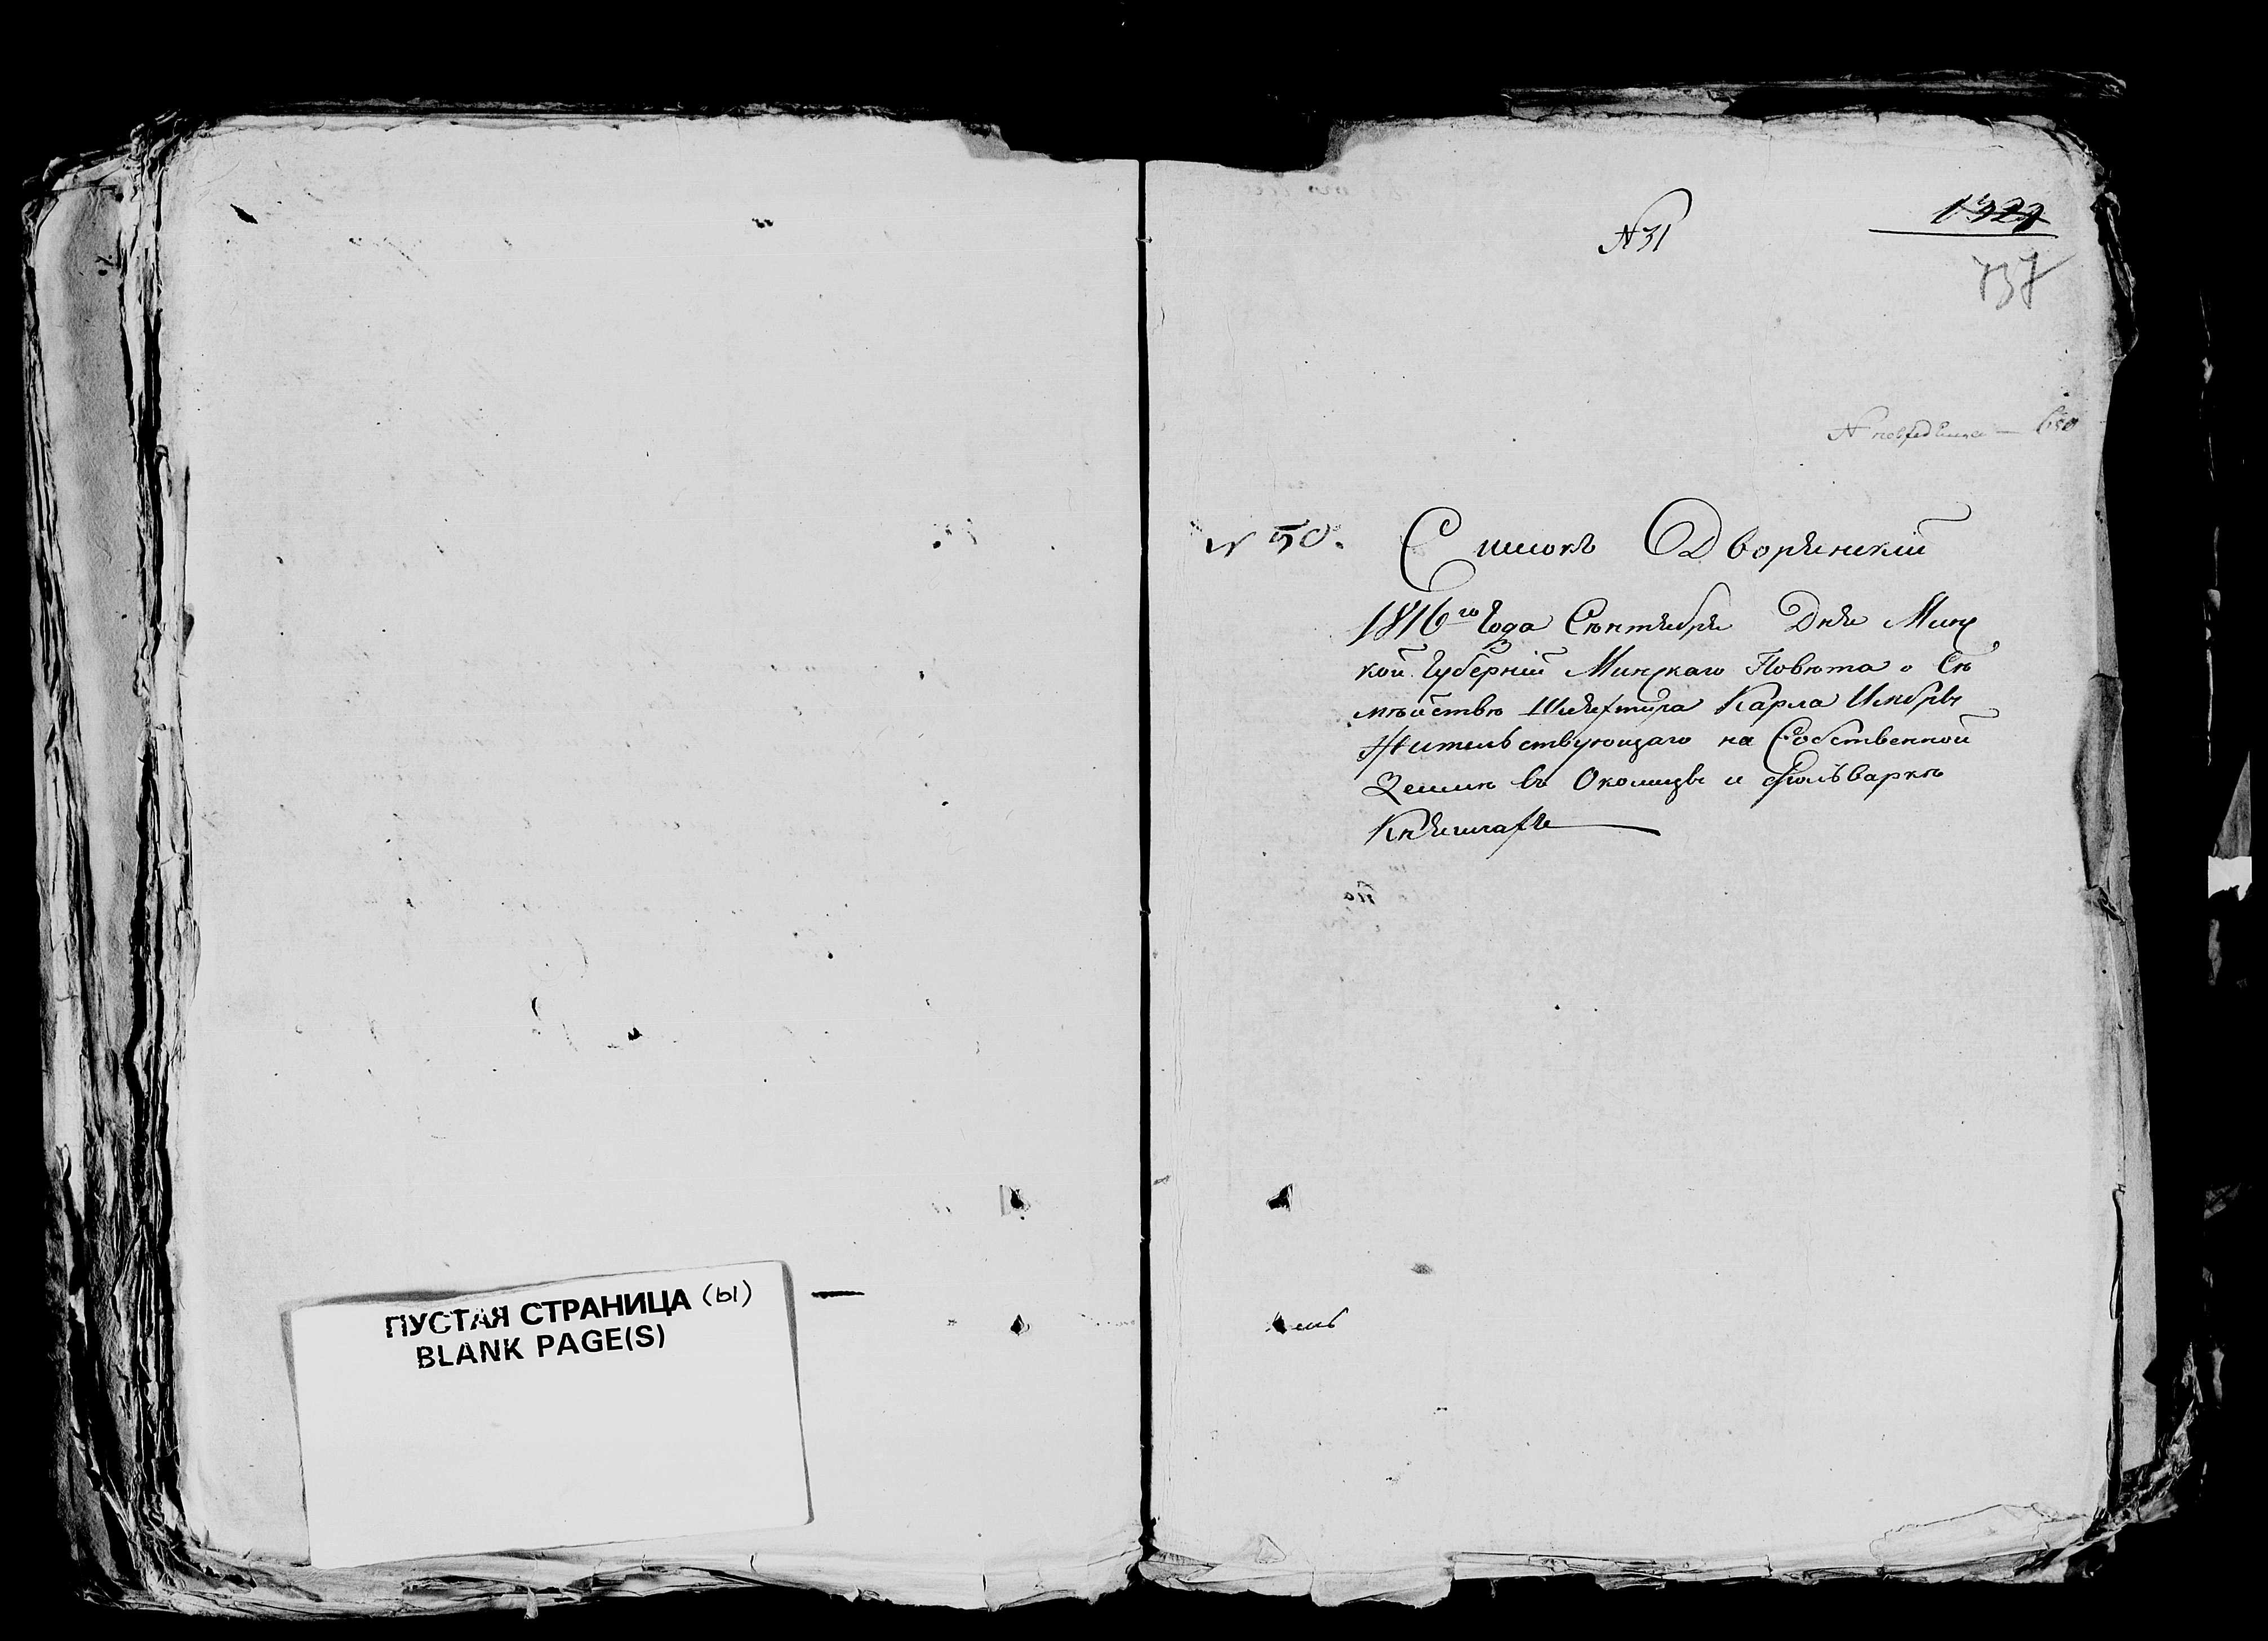 ПУСТАЯ СТРАНИЦА (ы)
BLANK PAGE(S)
№ 31
1322
737
№ 650
№ 50. Списокъ Дворянскій
1816го Года Сентября Дня Минс
кой Губерніи Минскаго Повѣта о Сѣ
мѣйствѣ Шляхтича Карла
Жительствующаго на Собственной
Землѣ въ Околицѣ и Фольваркѣ